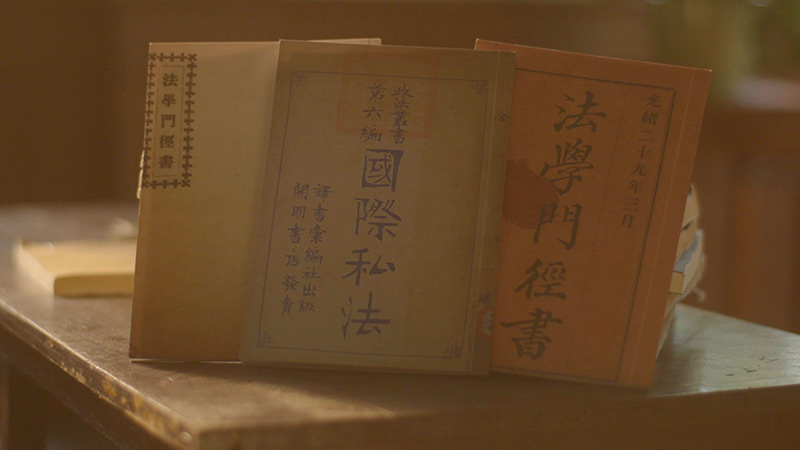 法學門徑書
政法叢書
第六編
國際私法
譯書彙編社出版
開明書店發賣
光緒二十九年三月
法學門徑書